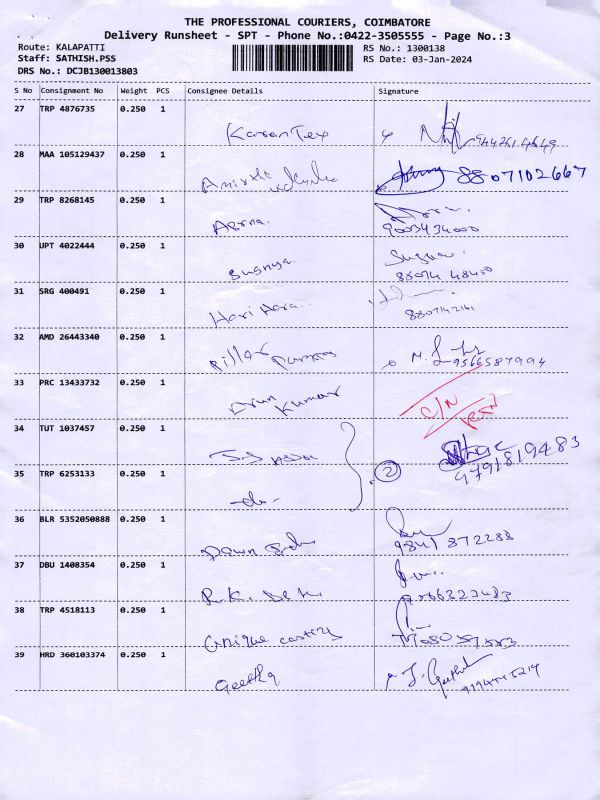 THE PROFESSIONAL COURIERS, COIMBATORE
Delivery Runsheet - SPT - Phone No.:0422-3505555 - Page No.:3
Route: KALAPATTI RS No.: 1300138
Staff: SATHISH.PSS RS Date: 03-Jan-2024
DRS No.: DCJB130013803
S No Consignment No Weight PCS Consignee Details Signature
27 TRP 4876735 0.250 1
Karan Tex
28 MAA 105129437 0.250 1
8807102667
29 TRP 8268145 0.250 1
9003434000
30 UPT 4022444 0.250 1
Suganya.
31 SRG 400491 0.250 1
Hari Hara..
32 AMD 26443340 0.250 1
9566587994
33 PRC 13433732 0.250 1
Arun Kumar
34 TUT 1037457 0.250 1
2
9791819483
35 TRP 6253133 0.250 1
- do -
36 BLR 5352050888 0.250 1
9841872288
37 DBU 1408354 0.250 1
R.K.
38 TRP 4518113 0.250 1
Unique casting
39 HRD 360103374 0.250 1
Geetha